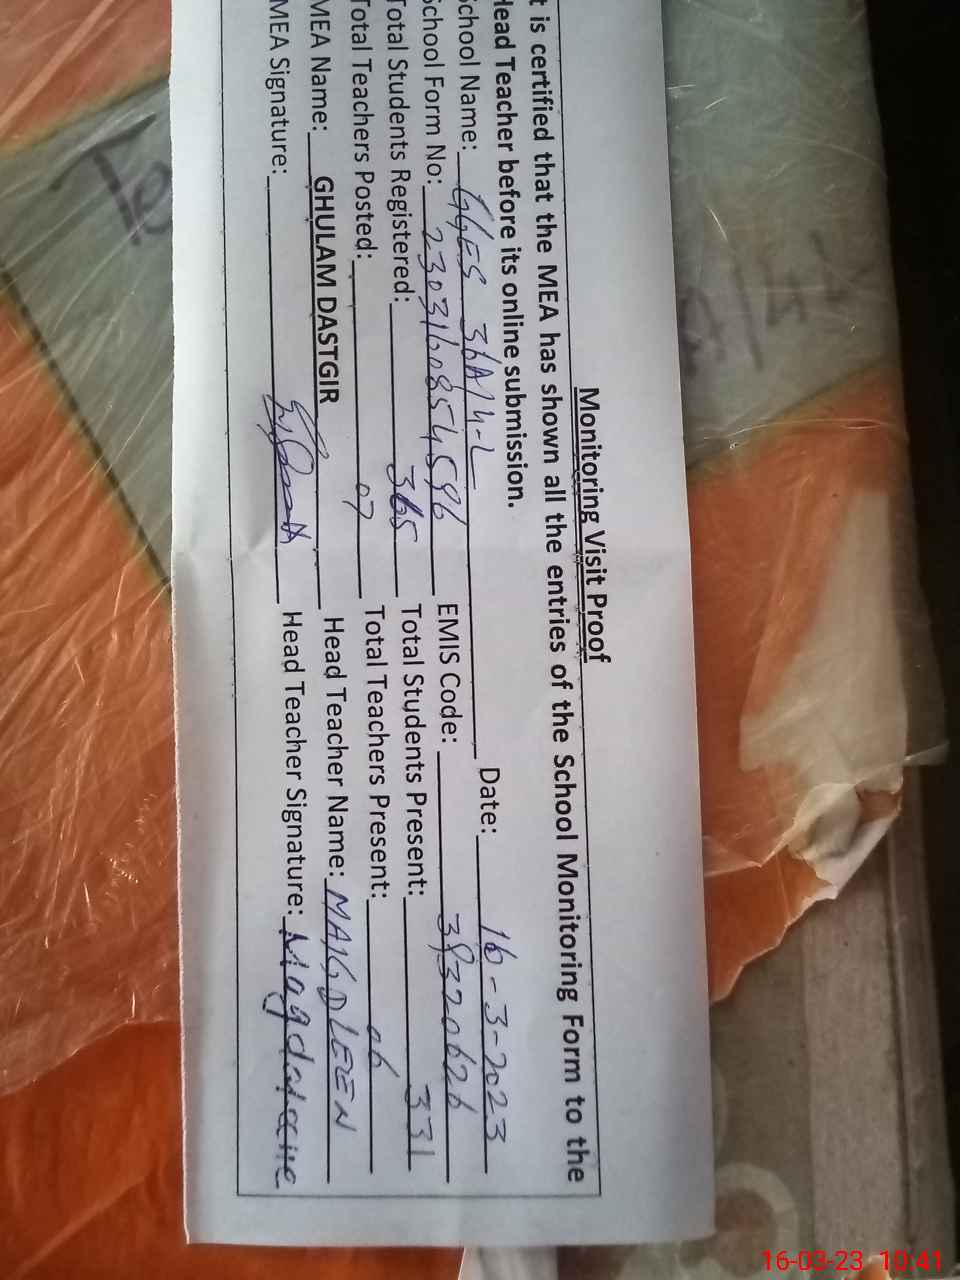 Monitoring Visit Proof
t is certified that the MEA has shown all the entries of the School Monitoring Form to the
Head Teacher before its online submission.
School Name: GGES 36A/4-L Date: 16-3-2023
School Form No: 2303160854596 EMIS Code: 39320626
Total Students Registered: 365 Total Students Present: 331
Total Teachers Posted: 07 Total Teachers Present: 06
MEA Name: GHULAM DASTGIR Head Teacher Name: MAIGDLEEN
MEA Signature: Head Teacher Signature: Magdaleene
Te
16-03-23 10:41